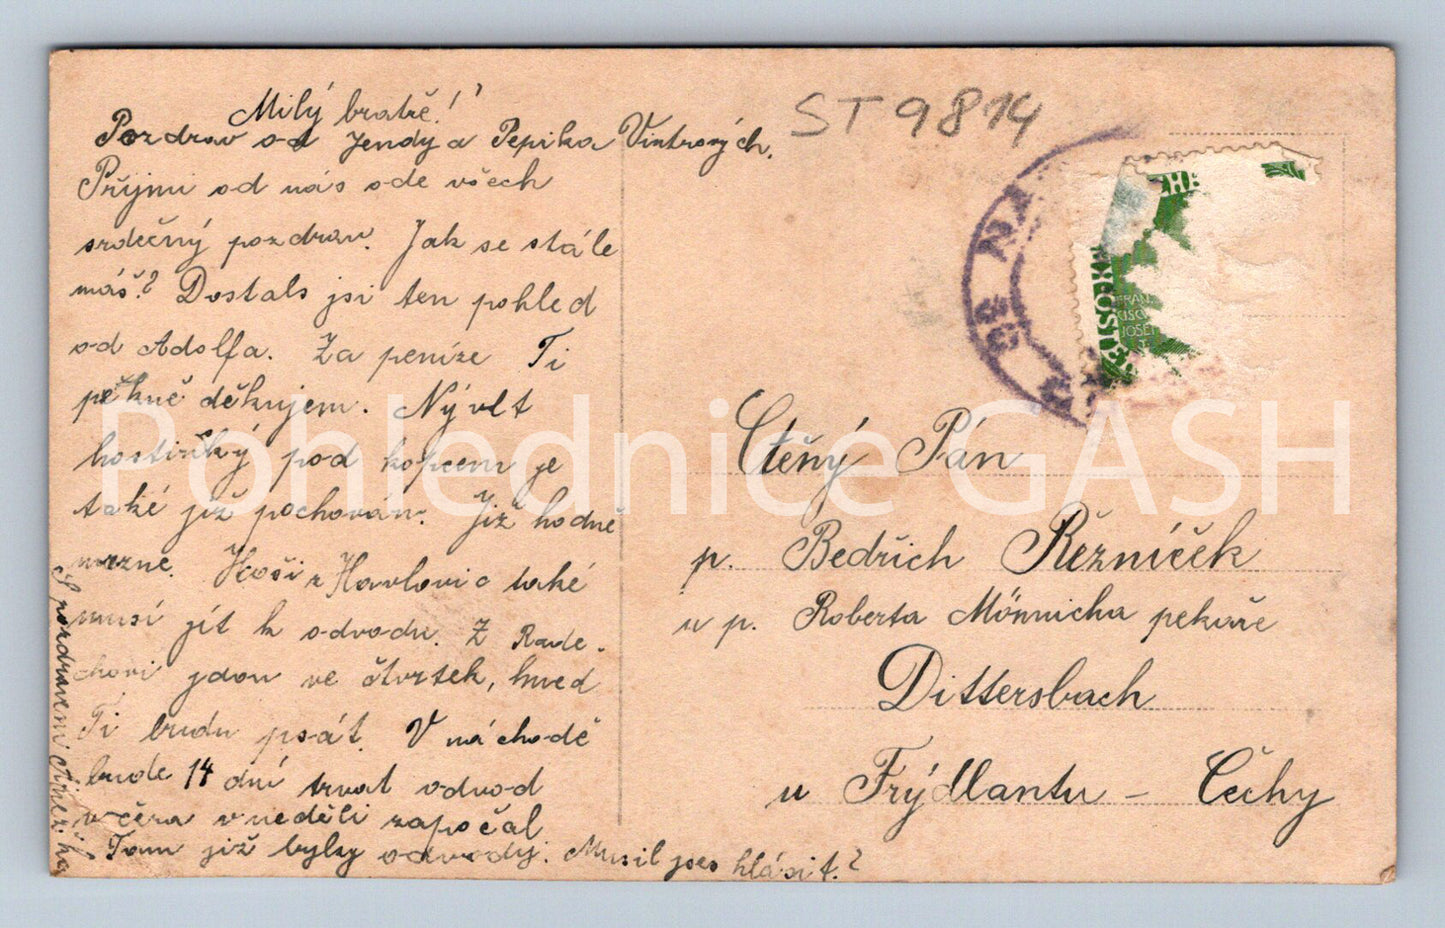 Milý bratře!
Pozdrav od Jendy a Pepika Vintrových.
Přijmi od nás ode všech
srdečný pozdrav. Jak se stále
máš? Dostals jsi ten pohled
od Adolfa. Za peníze Ti
pěkně děkujem. Nývlt
hostinský pod kopcem je
také již pochován. Již hodně
mrzne. Hoši z Havlovic také
musí jít k odvodu. Z Rade-
chovi jdou ve čtvrtek, hned
Ti budu psát. V náchodě
bude 14 dní trvat odvod
včera v neděli započal
Tam již byly odvody. Musil jses hlásit?
S pozdravem
ST 9814
NA
SE
FRAN
CISC
JOSEF
I
Ctěný Pán
p. Bedřich Řezníček
u p. Roberta Mönnicha pekaře
Dittersbach
u Frýdlantu - Čechy
Pohlednice GASH